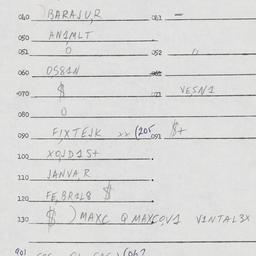 040 BARAJU,R 041 —
050 AN1MLT
051 0 052 "
060 OS81N
070 $ 071 VE,SN1
080 0
090 F,XTEJK xx (205 091 $+
100 XO,D15+
110 JANVA,R
120 FE,BR1L8 $
130 $ ) MAXC Q MAXCO,V1 V1NTAL3X